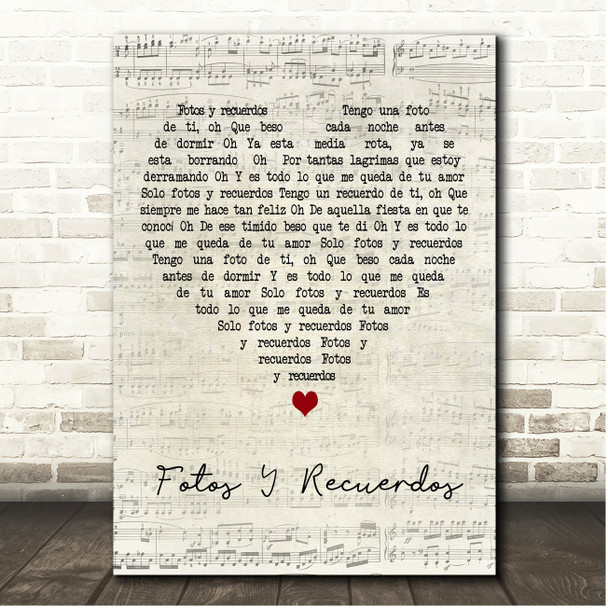 Fotos y recuerdos Tengo una foto
de ti, oh Que beso cada noche antes
de dormir Oh Ya esta media rota, ya se
esta borrando Oh Por tantas lagrimas que estoy
derramando Oh Y es todo lo que me queda de tu amor
Solo fotos y recuerdos Tengo un recuerdo de ti, oh Que
siempre me hace tan feliz Oh De aquella fiesta en que te
conocí Oh De ese timido beso que te di Oh Y es todo lo
que me queda de tu amor Solo fotos y recuerdos
Tengo una foto de ti, oh Que beso cada noche
antes de dormir Y es todo lo que me queda
de tu amor Solo fotos y recuerdos Es
todo lo que me queda de tu amor
Solo fotos y recuerdos Fotos
y recuerdos Fotos y
recuerdos Fotos
y recuerdos
Fotos Y Recuerdos